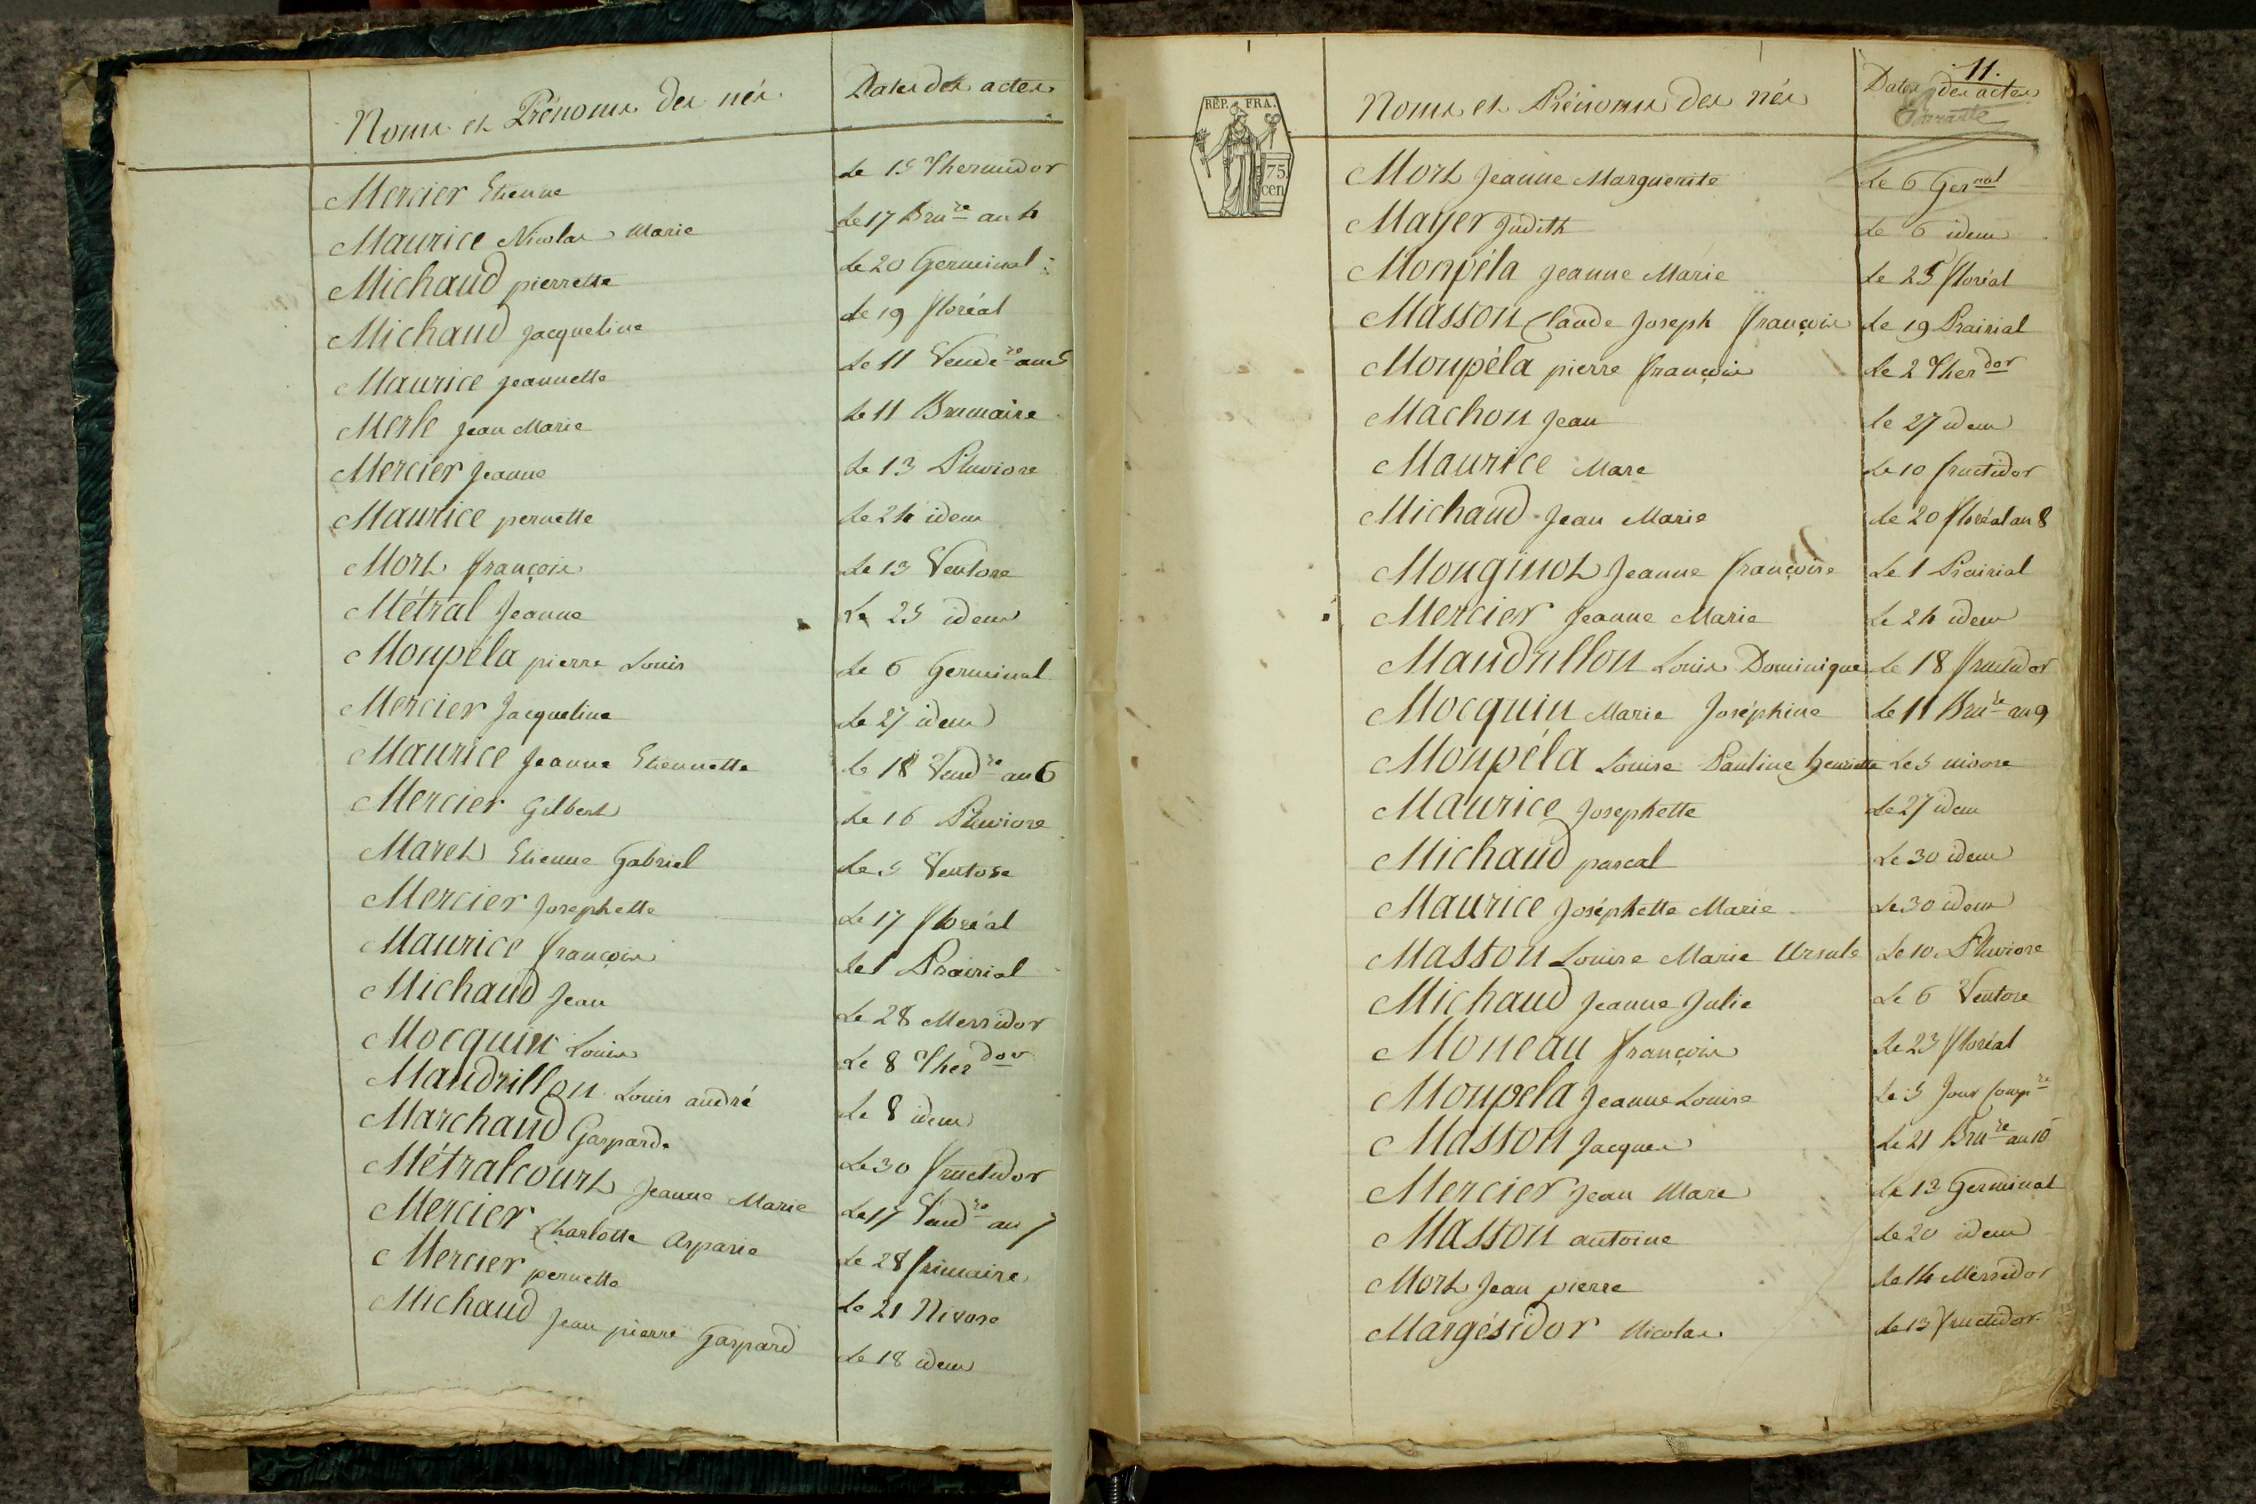 Noms et Prénoms des nés Dates des actes
Mercier Etienne Le 15 Thermidor
Maurice Nicolas Marie Le 17 Bru.re an 4
Michaud pierrette Le 20 Germinal
Michaud Jacqueline Le 19 floréal
Maurice Jeannette Le 11 Vende.re an 5
Merle Jean Marie Le 11 Brumaire
Mercier Jeanne Le 13 Pluviose
Maurice pernette Le 24 idem
Mort françois Le 13 Ventose
Métral Jeanne Le 25 idem
Monpéla pierre Louis Le 6 Germinal
Mercier Jacqueline Le 27 idem
Maurice Jeanne Etiennette Le 18 Vend.re an 6
Mercier Gilbert Le 16 Pluviose
Maret Etienne Gabriel Le 5 Ventose
Mercier Josephette Le 17 floréal
Maurice françois Le 1 Prairial
Michaud Jean Le 28 Messidor
Mocquin Louis Le 8 Ther.dor
Mandrillon Louis andré Le 8 idem
Marchand Gaspard. Le 30 fructidor
Métralcourt Jeanne Marie Le 17 Vend.re an 7
Mercier Charlotte Aspasie Le 28 frimaire
Mercier pernette Le 21 Nivose
Michaud Jean pierre Gaspard Le 18 idem
11.
REP. FRA.
75 cen
Noms et Prénoms des nés Dates des actes
Mort Jeanne Marguerite Le 6 Ger.nal
Mayer Judith Le 6 idem
Monpéla Jeanne Marie Le 25 floréal
Masson Claude Joseph françois Le 19 Prairial
Monpéla pierre françois Le 2 Ther.dor
Machon Jean Le 27 idem
Maurice Marc Le 10 fructidor
Michaud Jean Marie Le 20 floréal an 8
Monginot Jeanne françoise Le 1 Prairial
Mercier Jeanne Marie Le 24 idem
Mandrillon Louis Dominique Le 18 fructidor
Mocquin Marie Joséphine Le 11 Bru.re an 9
Monpéla Louise Pauline henriette Le 5 nivose
Maurice Josephette Le 27 idem
Michaud pascal Le 30 idem
Maurice Joséphette Marie Le 30 idem
Masson Louise Marie Ursule Le 10 Pluviose
Michaud Jeanne Julie Le 6 Ventose
Moneau françois Le 23 floréal
Monpela Jeanne Louise Le 5 Jour Comp.re
Masson Jacques Le 21 Bru.re an 10
Mercier Jean Marc Le 13 Germinal
Masson antoine Le 20 idem
Mort Jean pierre Le 14 Messidor
Margésidor Nicolas Le 13 fructidor